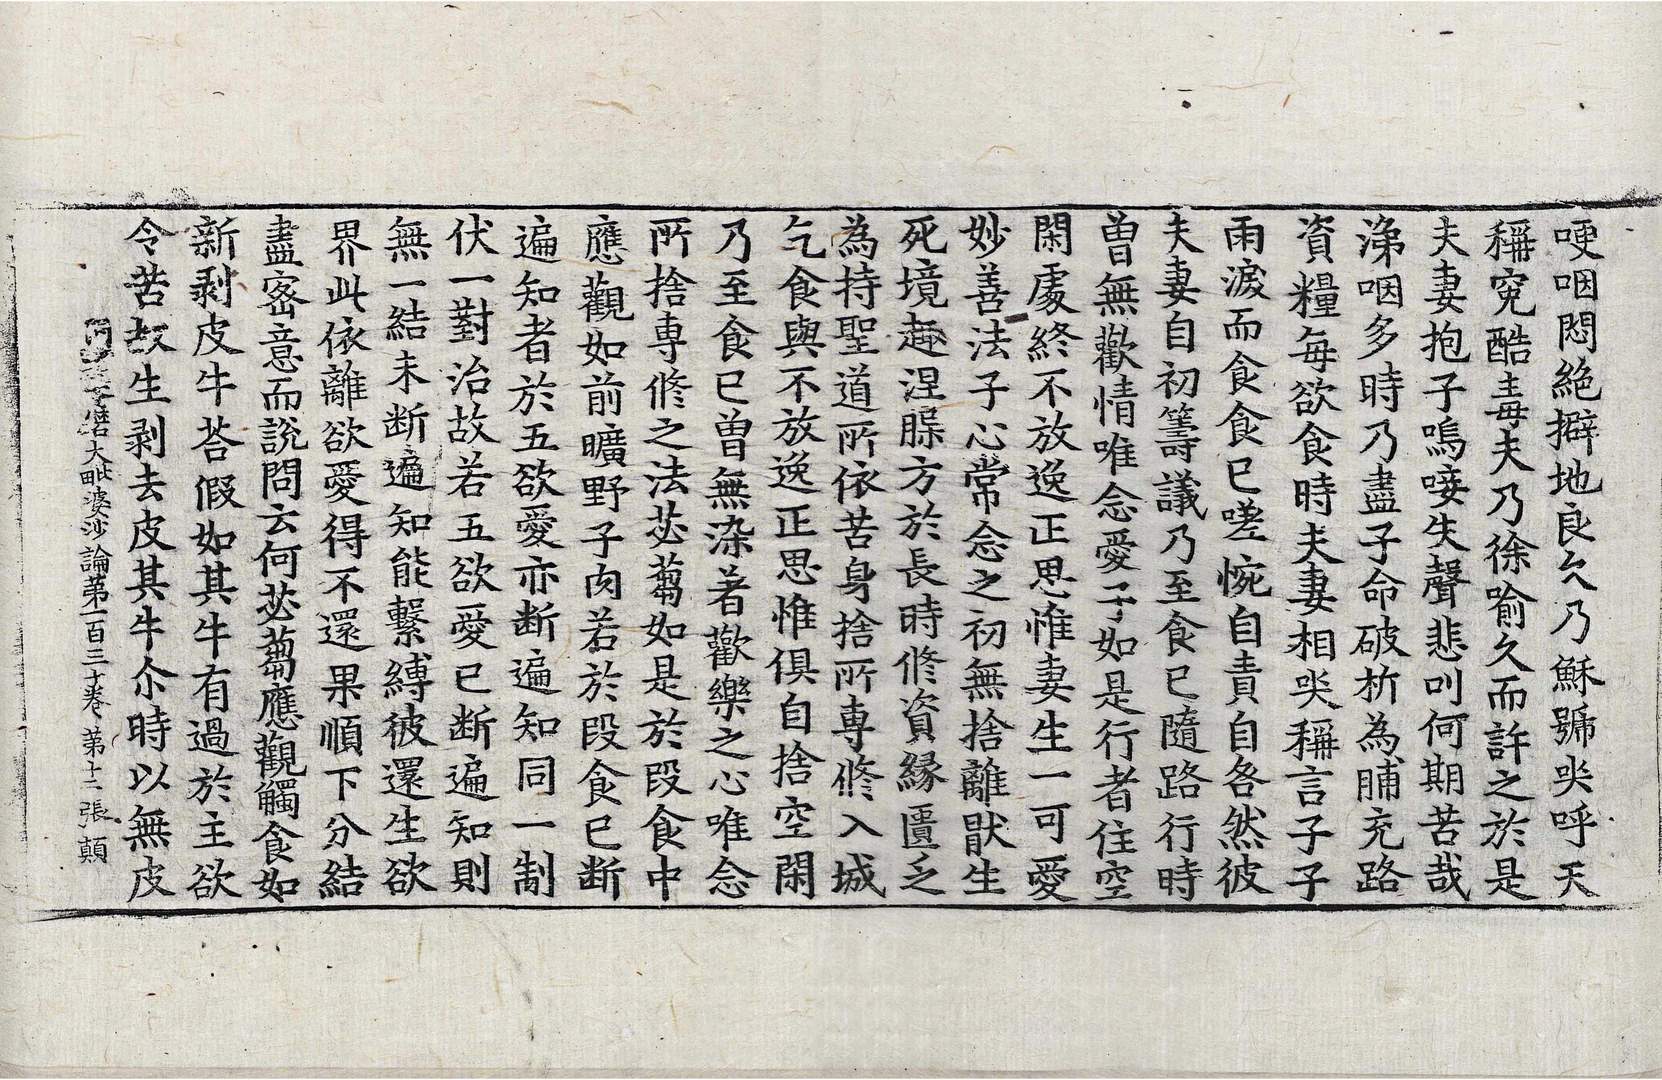 哽咽悶絶擗地良久乃穌號哭呼天
稱寃酷毒夫乃徐喻久而許之於是
夫妻抱子嗚唼失聲悲叫何期苦哉
涕咽多時乃盡子命破析為脯充路
資糧每欲食時夫妻相哭稱言子子
雨淚而食食已嗟惋自責自咎然彼
夫妻自初籌議乃至食已隨路行時
曽無歡情唯念愛子如是行者住空
閑處終不放逸正思惟妻生一可愛
妙善法子心常念之初無捨離猒生
死境趣涅槃方於長時修資縁匱乏
為持聖道所依苦身捨所専修入城
乞食與不放逸正思惟俱自捨空閑
乃至食已曽無染著歡樂之心唯念
所捨専修之法苾蒭如是於段食中
應觀如前曠野子肉若於段食已断
遍知者於五欲愛亦断遍知同一制
伏一對治故若五欲愛已断遍知則
無一結未断遍知能繫縛彼還生欲
界此依離欲愛得不還果順下分結
盡密意而說問云何苾蒭應觀觸食如
新剥皮牛荅假如其牛有過於主欲
令苦故生剥去皮其牛尒時以無皮
阿毗達磨大毗婆沙論第一百三十卷 第十二張 顛